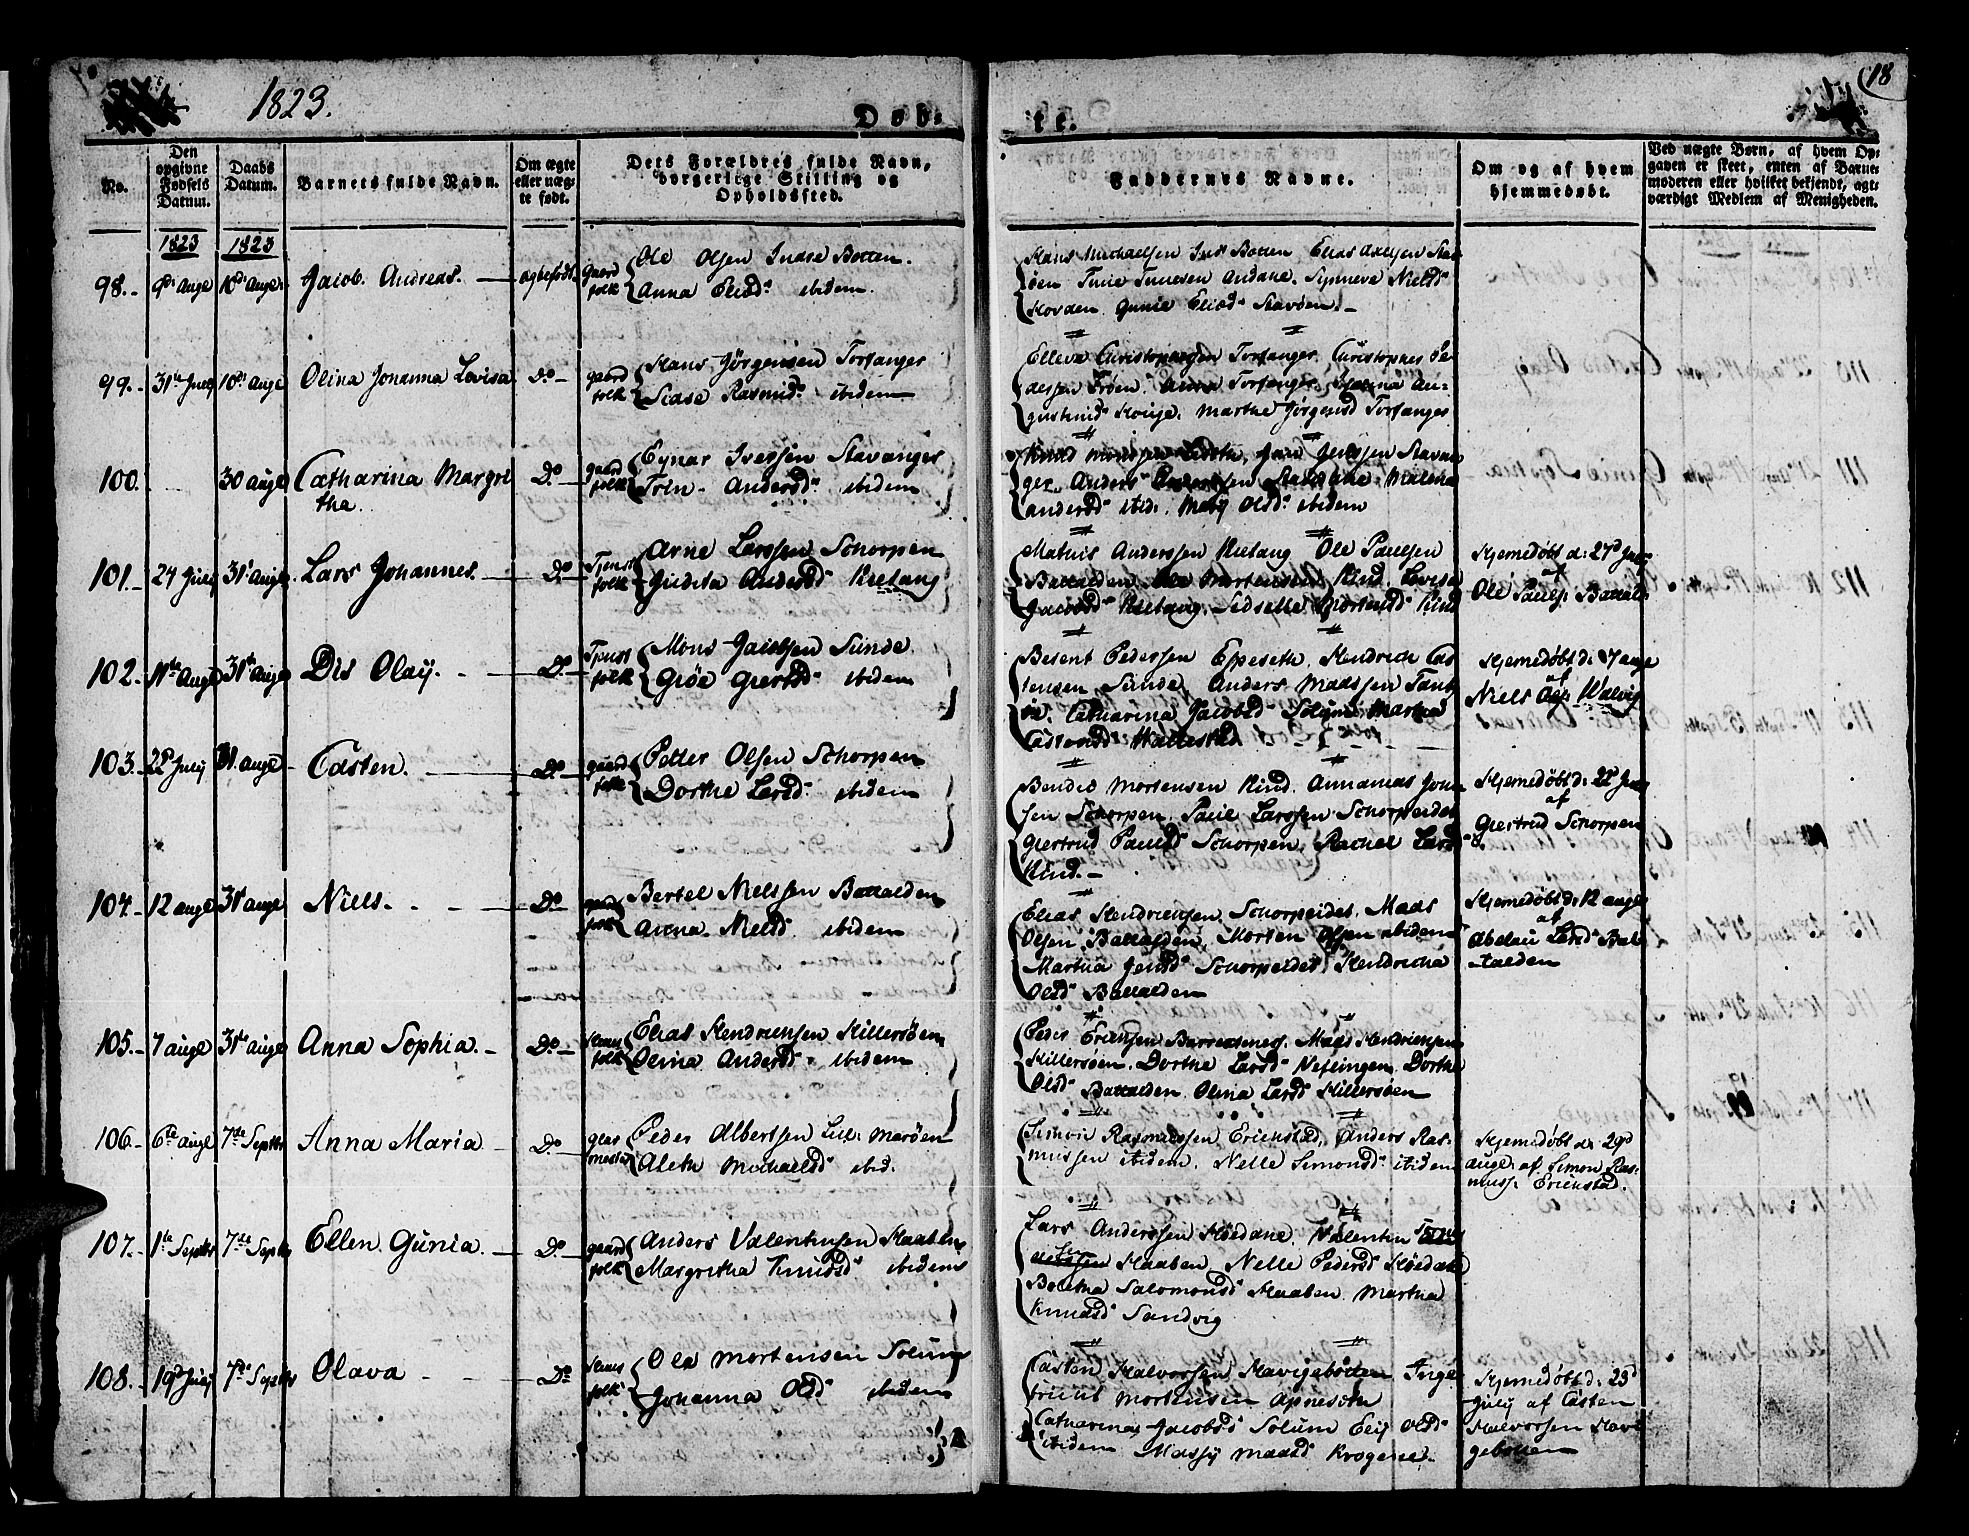 1823.
18
Døb-
te.
No.
Den opgivne Fødsels Datum.
Daabs Datum.
Barnets fulde Navn.
Om ægte eller uægte født.
Dets Forældres fulde Navn, borgerlige Stilling og Opholdssted.
Faddernes Navne.
Om og af hvem hjemmedøbt.
Ved uægte Børn, af hvem Opgaven er skeet, enten af Barnemoderen eller hvilket bekjendt, agtværdigt Medlem af Menigheden.
1823 1823
98. 9de Auge 10de Auge Jacob Andreas. ægtefødt. Gaard folk
Ole Olsen Indre Botten.
Anna Eliæd. ibidem.
Hans Michaelsen Botten Elias
Andane. Synneve Nielsd
Hovden Gunie Eliæd Stavøen.
99. 31te July 10de Auge Olina Johanna Lovisa Do gaard folk
Hans Jørgensen Torsanger
Sidse Rasmusd. ibidem
Christophersen Torsanger. Christopher Pe-
dersen Anna Torsanger. Au-
gustinid Marthe Jørgensd Torsanger
100. 30 auge Catharina Margre
tha. Do gaard folk
Eynar Iversen Stavanger
Andersd. ibidem
Knud Jenssen Stavan
ger. Anders Malena
andersd ibid. Olsd. ibidem
101. 24 July 31te Auge Lars Johannes. Do Tjenst folk
Arne Larssen Schorpen
Judita Andersd Kletang
Mathis Anderssen Kletang Ole Paulsen
Battalden. Ole Mortensen Kind. Lovisa
Jacobsd Kletang. Sidselle Mortensd Kind
Hjemedøbt d: 27d July
af
Ole Pauls. Battal
102. 11te Auge 31te Auge Dis Olay. Do Tjenst folk
Mons Jacobsen Sunde
Gjertsd ibidem
Besent Pedersen Espeseth. Hendrich Cas
tensen Sunde, Anders Madssen
Catharina Jacobsd Solum Martha
Castensd
Hjemedøbt d: 7 auge
af
Niels
103. 22d July 31 auge Casten. Do gaard folk
Petter Olsen Schorpen
Dorthe Larsd. ibidem
Bendic Mortensen Kind. Annanias John
sen Schorpen. Paul Larssen Schorpeidet
Giertrud Paulsd Schorpen, Rachel Larsd
Kind.
Hjemedøbt d: 22d July
af
Giertrud Schorpen
104. 12 auge 31 auge Niels. Do gaard folk
Bertel Nielssen Battalden
Anna Nielsd. ibidem
Elias Hendrichsen. Schorpeidet. Mads
Olsen Battalden, Morten Olsen ibidem
Martha Jensd Schorpeidet, Hendricha
Olsd Battalden
Hjemedøbt d: 12 auge
af
Abelau Larsd Bat
talden
105. 7 auge 31te auge Anna Sophia. Do Huus folk
Elias Hendrichsen Hillersøen
Olina Andersd. ibidem
Peder Erichsen Barrestenes. Mads Hendrichsen
Hillersøen. Dorthe Larsd Dorthe
Olsd Battalden Olina Larsd Hillersøen
106. 6te auge 7de Septbr Anna Maria Do
Peder Albertsen Marøen
Aleth Michaelsd ibid.
Simon Rasmussen Erichstad, Anders Ras-
mussen ibidem. Nelle Simonsd. ibidem
Hjemedøbt d: 29d
auge. af Simon Ras-
muss. Erichstad.
107. 1te Septbr 7de Septbr Ellen Gunia. Do gaard folk
Anders Valentinsen Haaben
Margretha Knudsd ibidem
Lars Anderssen Høedane. Valentin
Haaben, Nelle Pedersd Høedane
Beretha Salomonsd Haaben Martha
Knudsd Sandvig
108. 19d July 7de Septbr Olava Do Huus folk
Ole Mortensen Solum
Johanna Olsd ibidem
Casten Halvorssen Havigebotten Inge
brict Mortensen Apneseth
Catharina Jacobsd Solum Elij Olsd
ibidem Massy Madsd
Hjemedøbt d: 23d
July af Casten
Halvorssen Havi
gebotten